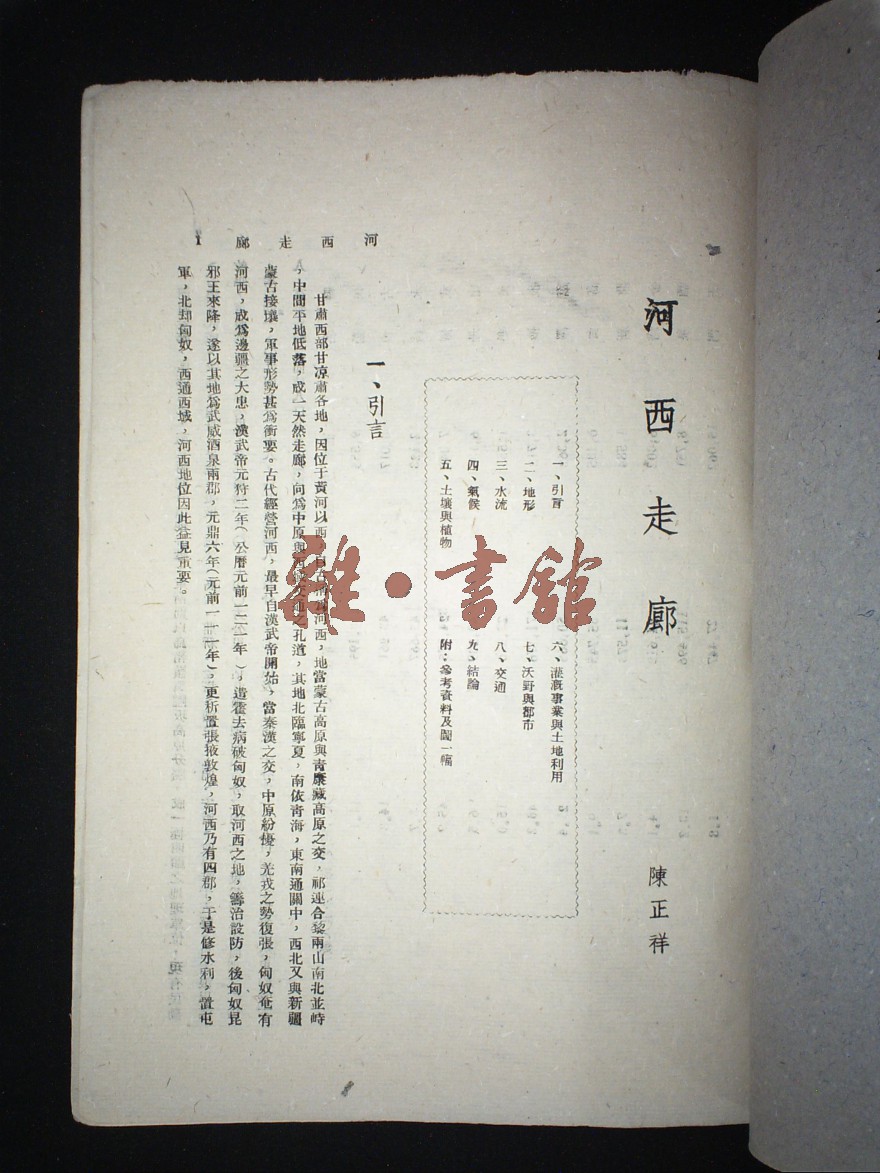 河西走廊
陳正祥
一、引言
二、地形
三、水流
四、氣候
五、土壤與植物
六、灌溉事業與土地利用
七、沃野與都市
八、交通
九、結論
附：參考資料及圖一幅
一、引言
河西走廊 1
甘肅西部甘凉肅各地，因位于黃河以西，自古稱爲河西，地當蒙古高原與青康藏高原之交，祁連合黎兩山南北並峙
，中間平地低落，成一天然走廊，向爲中原與西域交通之孔道，其地北臨寧夏，南依青海，東南通關中，西北又與新疆
蒙古接壤，軍事形勢甚爲衝要。古代經營河西，最早自漢武帝開始，當秦漢之交，中原紛擾，羌戎之勢復張，匈奴奄有
河西，成爲邊疆之大患，漢武帝元狩二年（公曆元前一二一年），遣霍去病破匈奴，取河西之地，籌治設防，後匈奴昆
邪王來降，遂以其地爲武威酒泉兩郡，元鼎六年（元前一一一年），更析置張掖敦煌，河西乃有四郡，于是修水利，置屯
軍，北却匈奴，西通西域，河西地位因此益見重要。
雜·書館